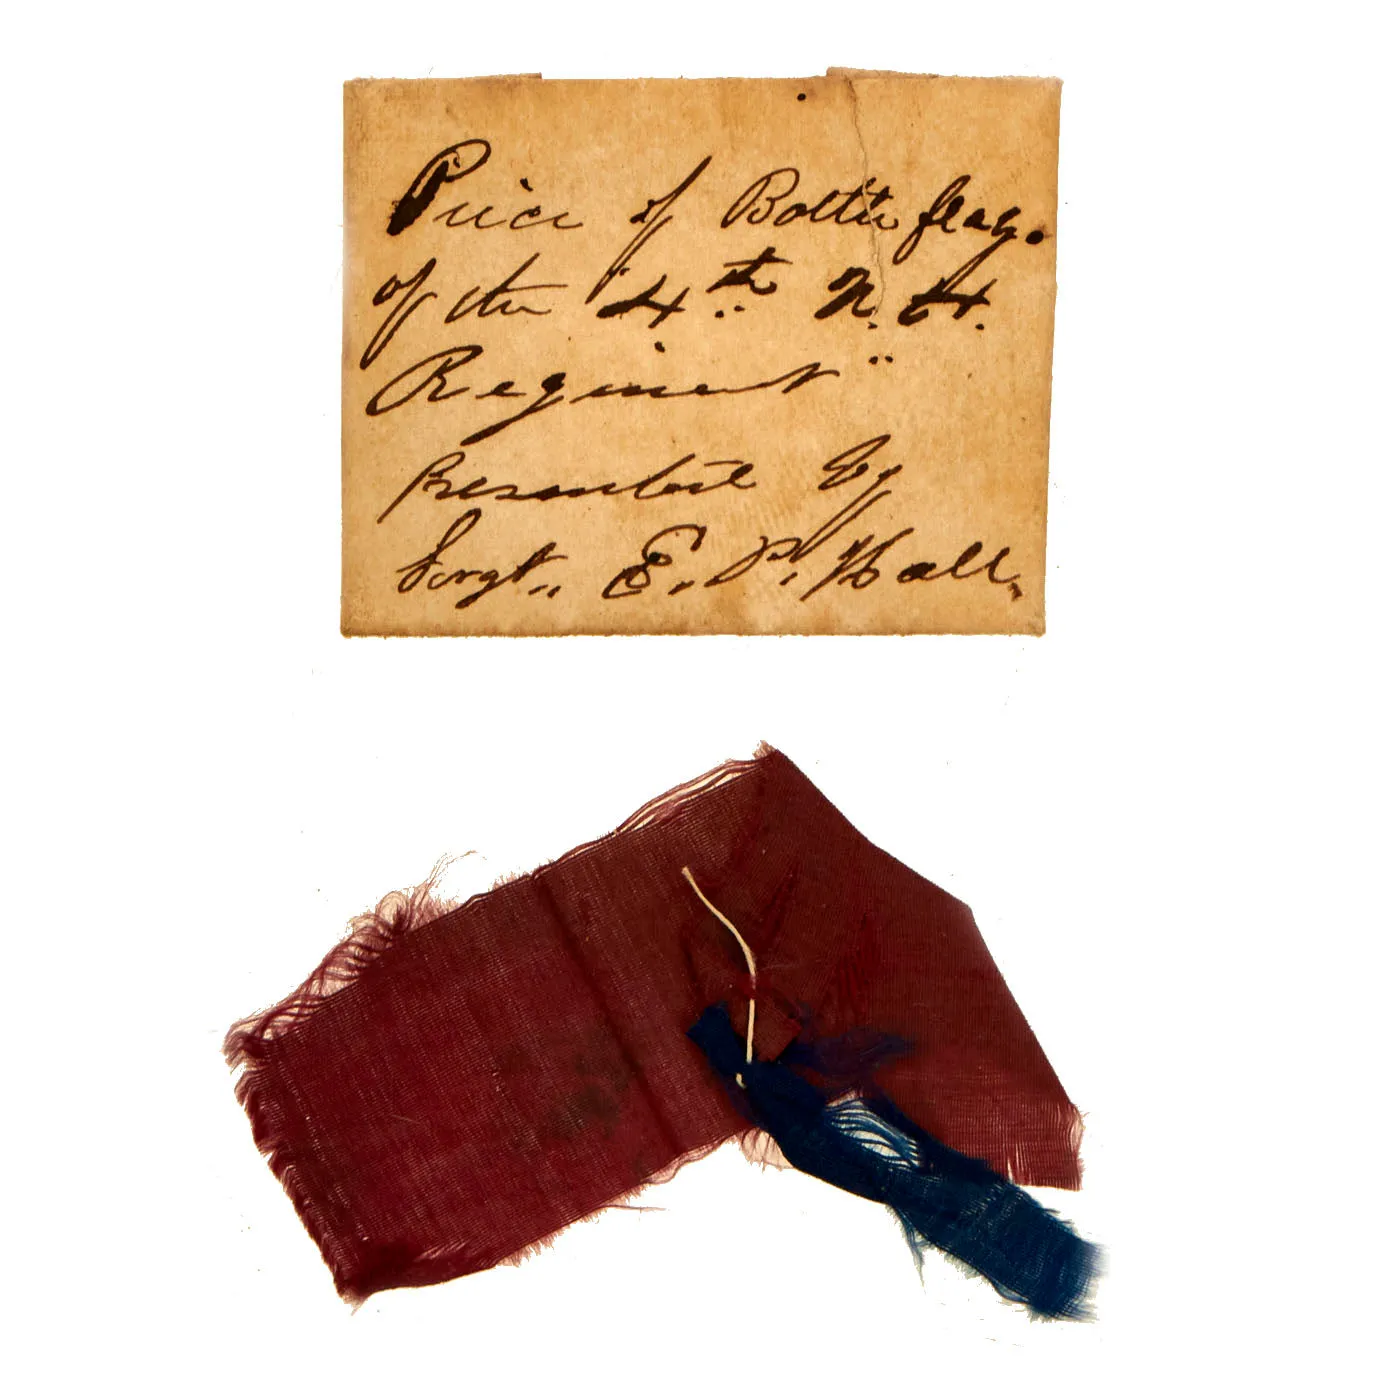 Piece of Battle flag.
of the 4th N. H.
Regiment
Presented by
Sergt. E. P. Hall.